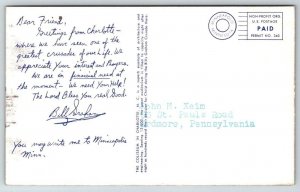 Dear Friend,
Greetings from Charlotte -
where we have seen one of the
greatest crusades of our life. We
appreciate your interest and Prayers.
We are in financial need at
the moment - We need You Help!
The Lord Bless You real Good.
Billy Graham
You may write me to Minneapolis
Minn.
NON-PROFIT ORG.
U.S. POSTAGE
PAID
PERMIT NO.
M. Keim
St. Pauls Road
Ardmore, Pennsylvania
THE COLISEUM IN CHARLOTTE, N. C.